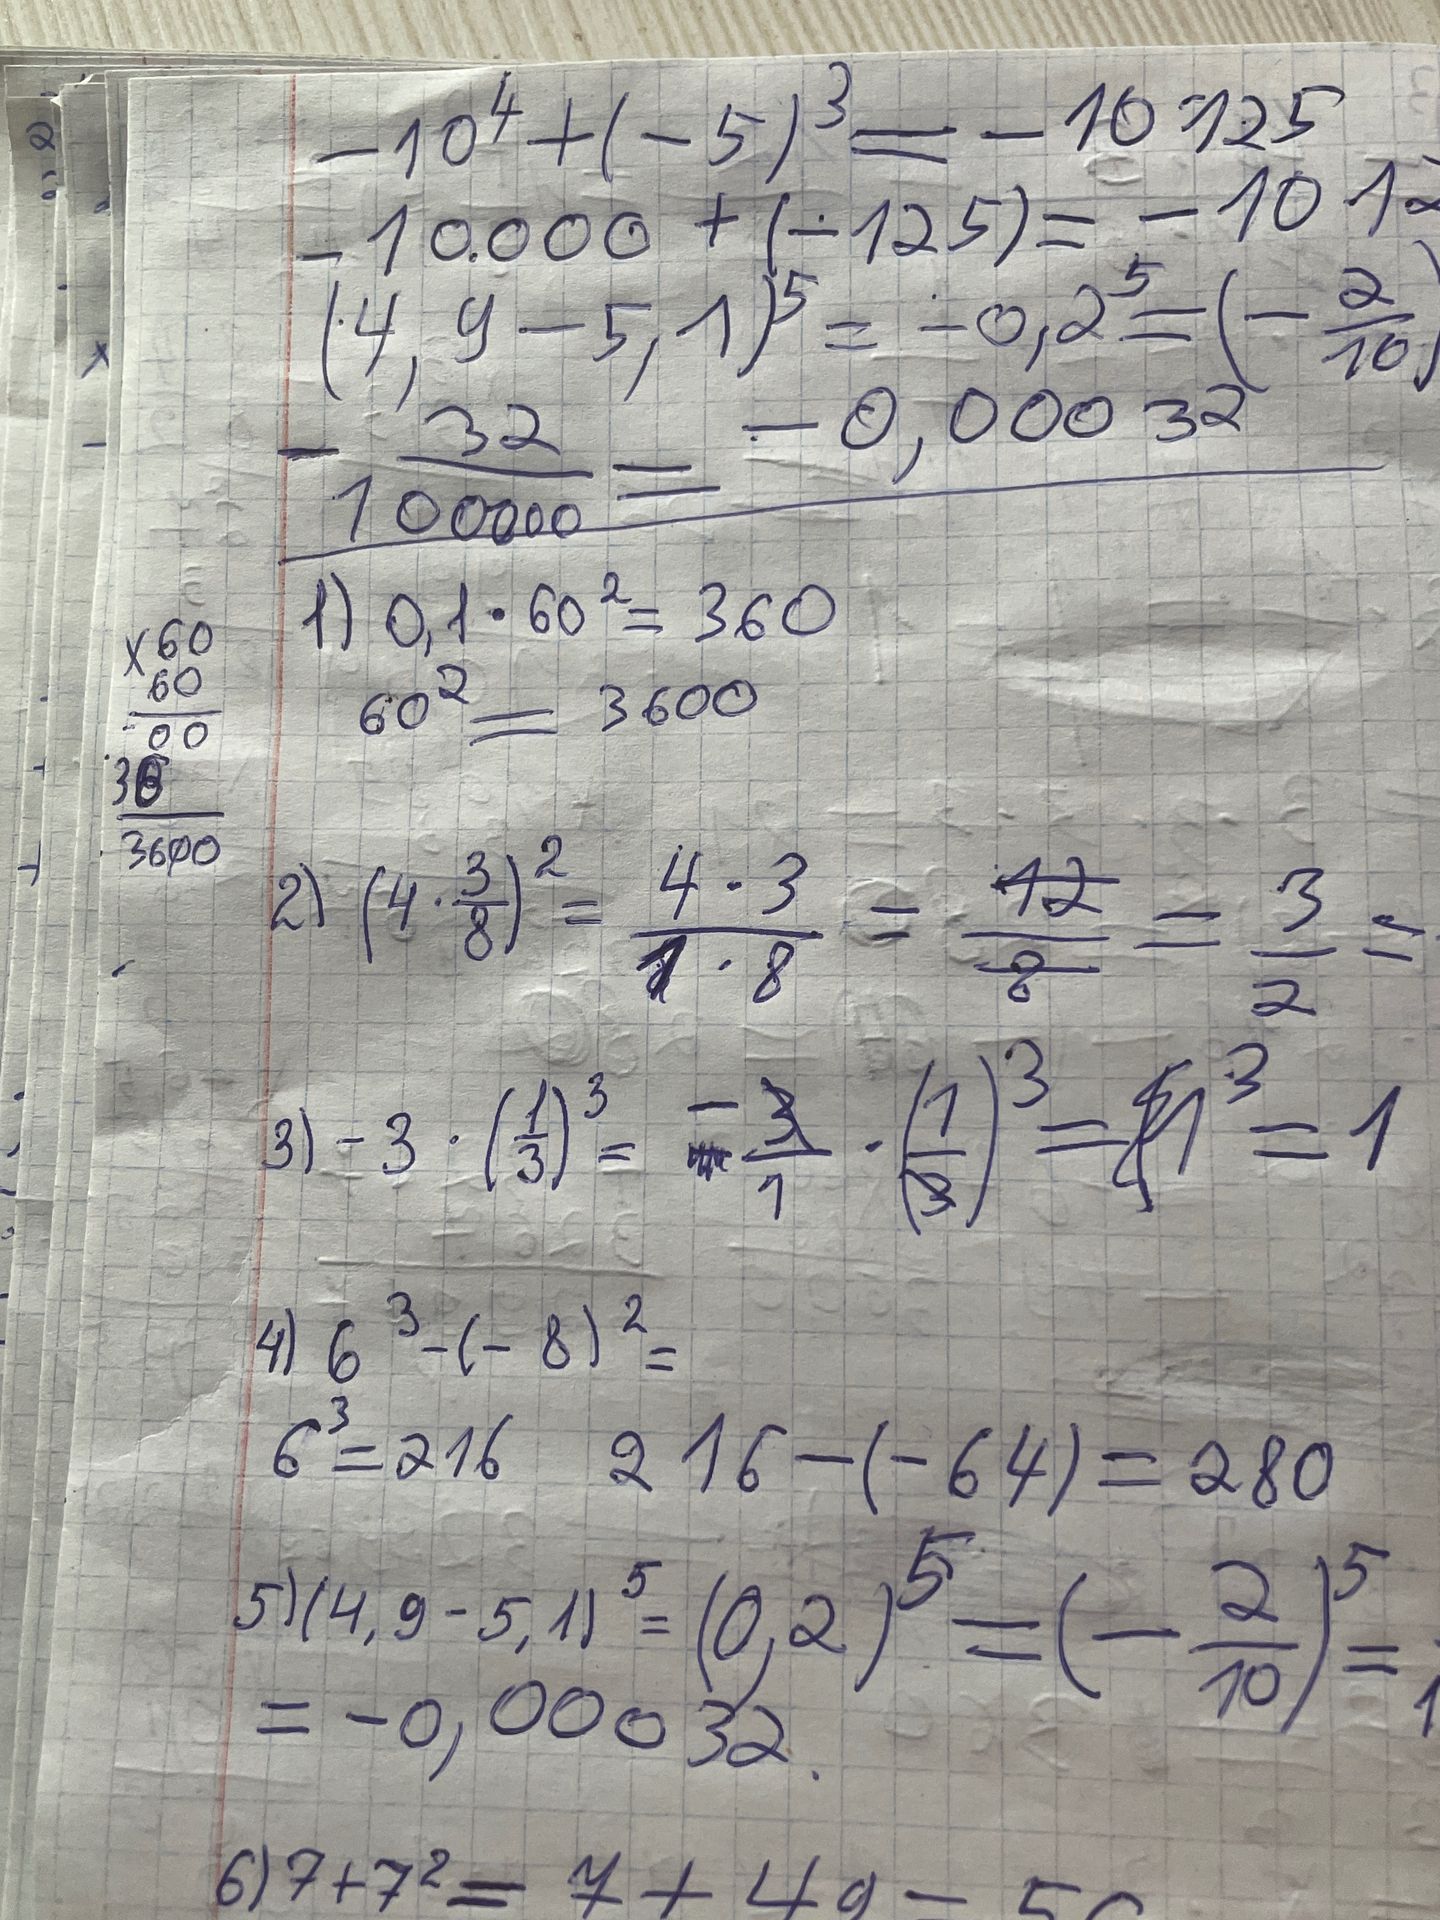 -10⁴+(-5)³=-10 125
-10.000+(-125)=-10 12
(4,9-5,1)⁵=-0,2⁵=(-2/10)
-32/100000=-0,00032
1) 0,1·60²=360
60²=3600
×60
60
00
36
3600
2) (4·3/8)²=4·3/1·8=12/8=3/2=
3) -3·(1/3)³=-3/1·(1/3)³=1³=1
4) 6³-(-8)²=
6³=216 216-(-64)=280
5) (4,9-5,1)⁵=(0,2)⁵=(-2/10)⁵=
=-0,00032.
6) 7+7²=7+49=56